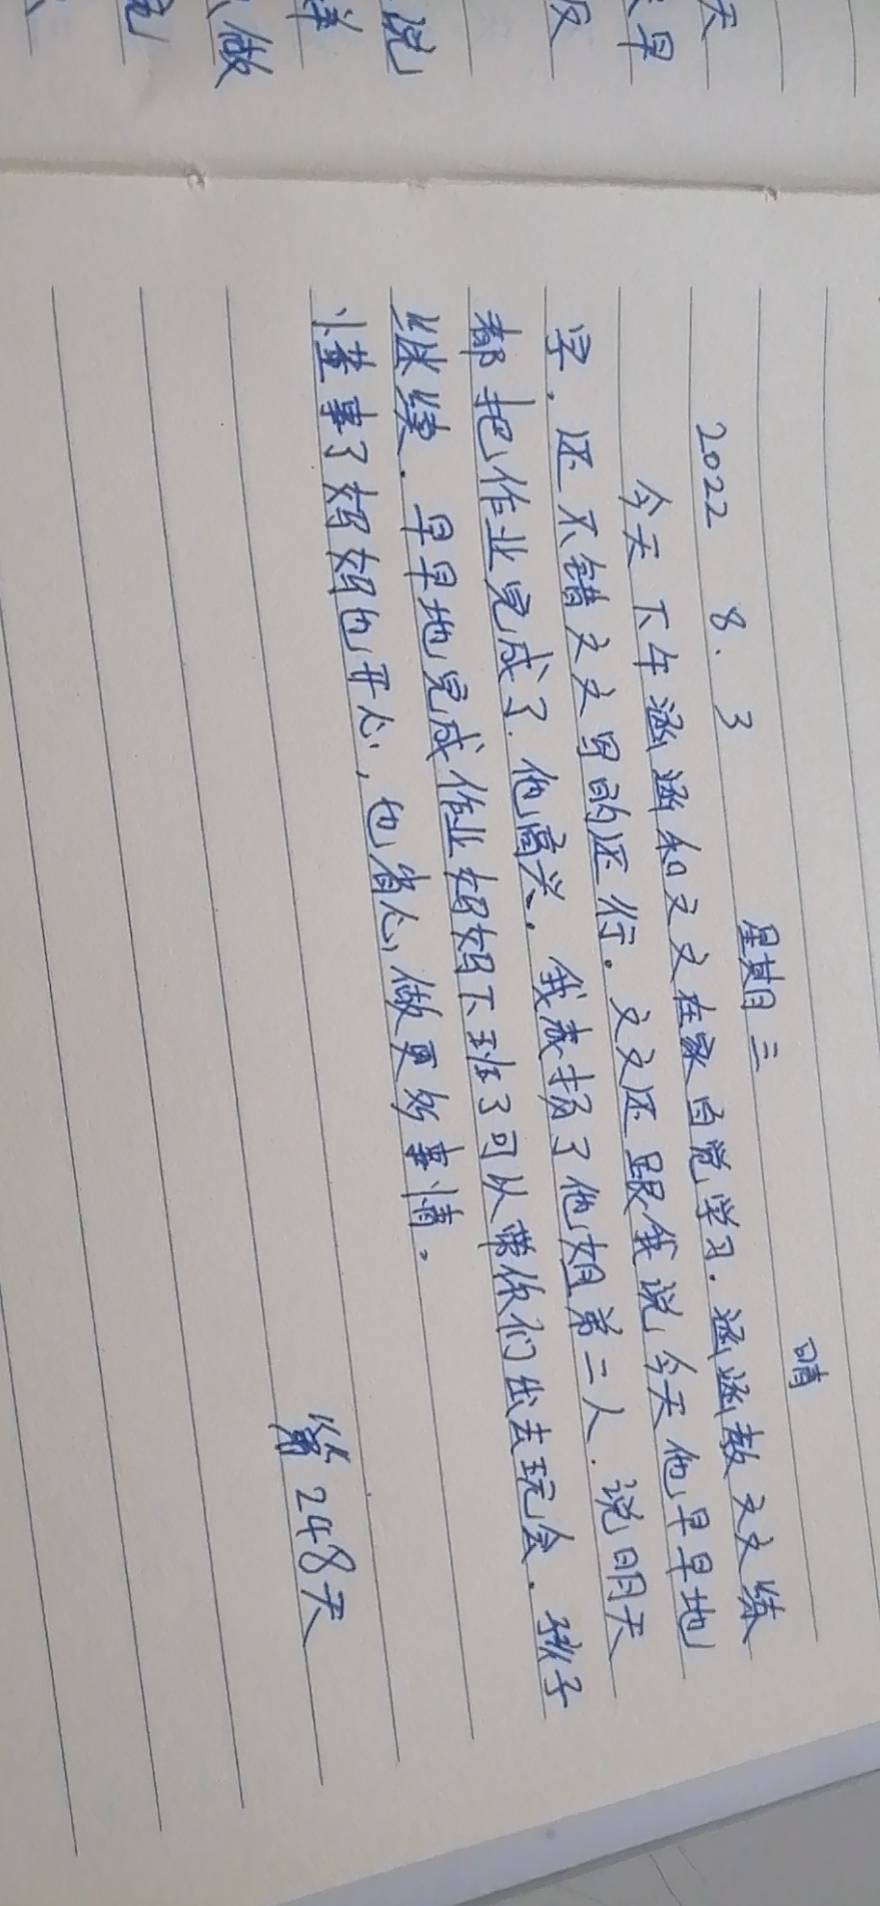 2022 8. 3 星期三 晴
今天下午涵涵和文文在家自觉学习. 涵涵教文文练
字, 还不错文文写的还行。文文还跟我说今天他早早地
都把作业完成了. 他高兴. 我表扬了他姐弟二人. 说明天
继续. 早早地完成作业妈妈下班了可以带你们出去玩会. 孩子
懂事了妈妈也开心, 也省心, 做更多事情。
第248天
天
早
反
说
样
做